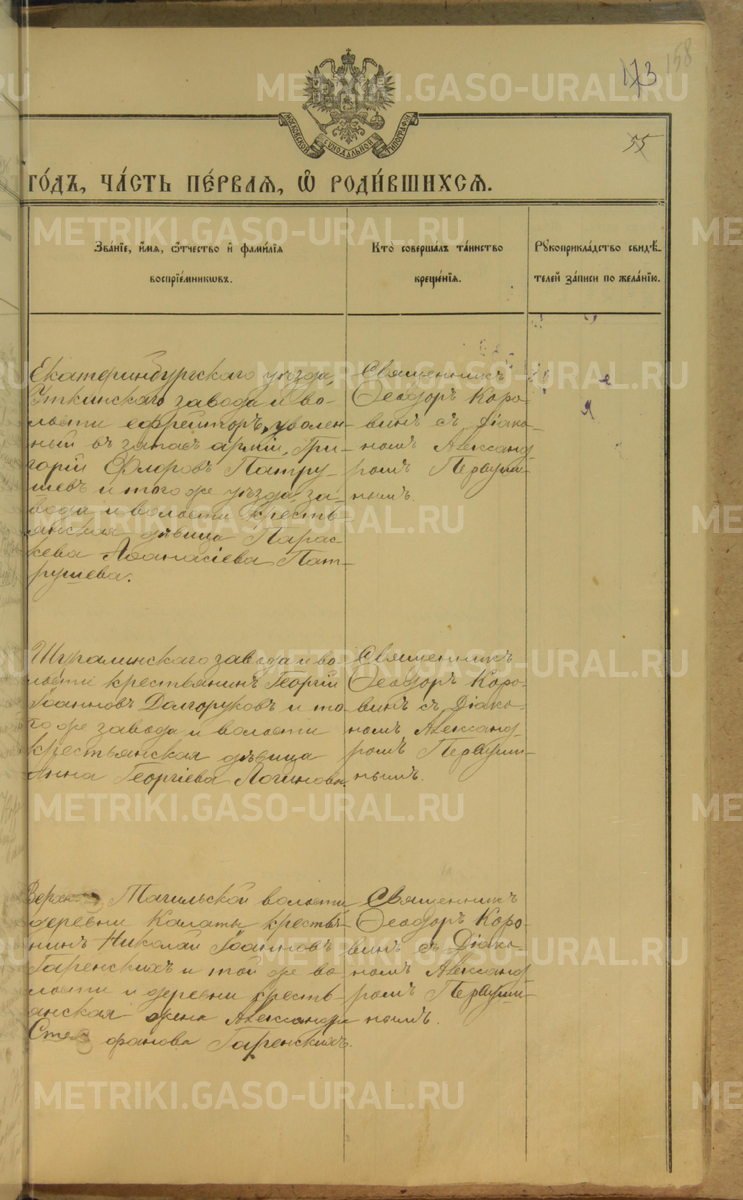 173 158
МОСКОВСКОЙ СѴНОДАЛЬНОЙ ТИПОГРАФІИ
55
ГО́ДЪ, ЧА́СТЬ ПЕ́РВАЯ, Ѽ РОДИ́ВШИХСЯ.
Зва́нїе, и́мя, ѻ҆́тчество и҆ фами́лїя
воспрїе́мникѡвъ.
Кто̀ соверша́лъ та́инство
креще́нїя.
Рꙋкоприкла́дство свидѣ́-
телей за́писи по жела́нїю.
Екатеринбургскаго уѣзда,
Уткинскаго завода и во-
лости ефрейторъ, уволен-
ный въ запасъ арміи, Гри-
горій Флоровъ Патру-
шевъ и того же уѣзда за-
вода и волости кресть-
янская дѣвица Парас-
кева Аѳанасіева Пат-
рушева.
Священникъ
Ѳеодоръ Коро-
винъ съ Діако-
номъ Александ-
ромъ Первуши-
нымъ.
Шуралинскаго завода и во-
лости крестьянинъ Георгій
Іоанновъ Долгоруковъ и то-
го же завода и волости
крестьянская дѣвица
Анна Георгіева Логинова.
Священникъ
Ѳеодоръ Коро-
винъ съ Діако-
номъ Александ-
ромъ Первуши-
нымъ.
Тагильской волости
деревни Калаты кресть-
нинъ Николай Іоанновъ
Гаренскихъ и той же во-
лости и деревни кресть-
янская жена Александра
Стефанова Гаренскихъ.
Священникъ
Ѳеодоръ Коро-
винъ съ Діако-
номъ Александ-
ромъ Первуши-
нымъ.
METRIKI.GASO-URAL.RU